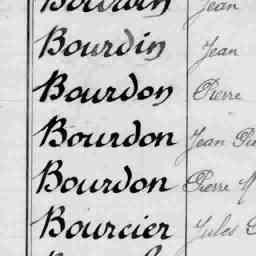 Jean
Bourdin Jean
Bourdon Pierre
Bourdon Jean
Bourdon Pierre
Bourcier Jules